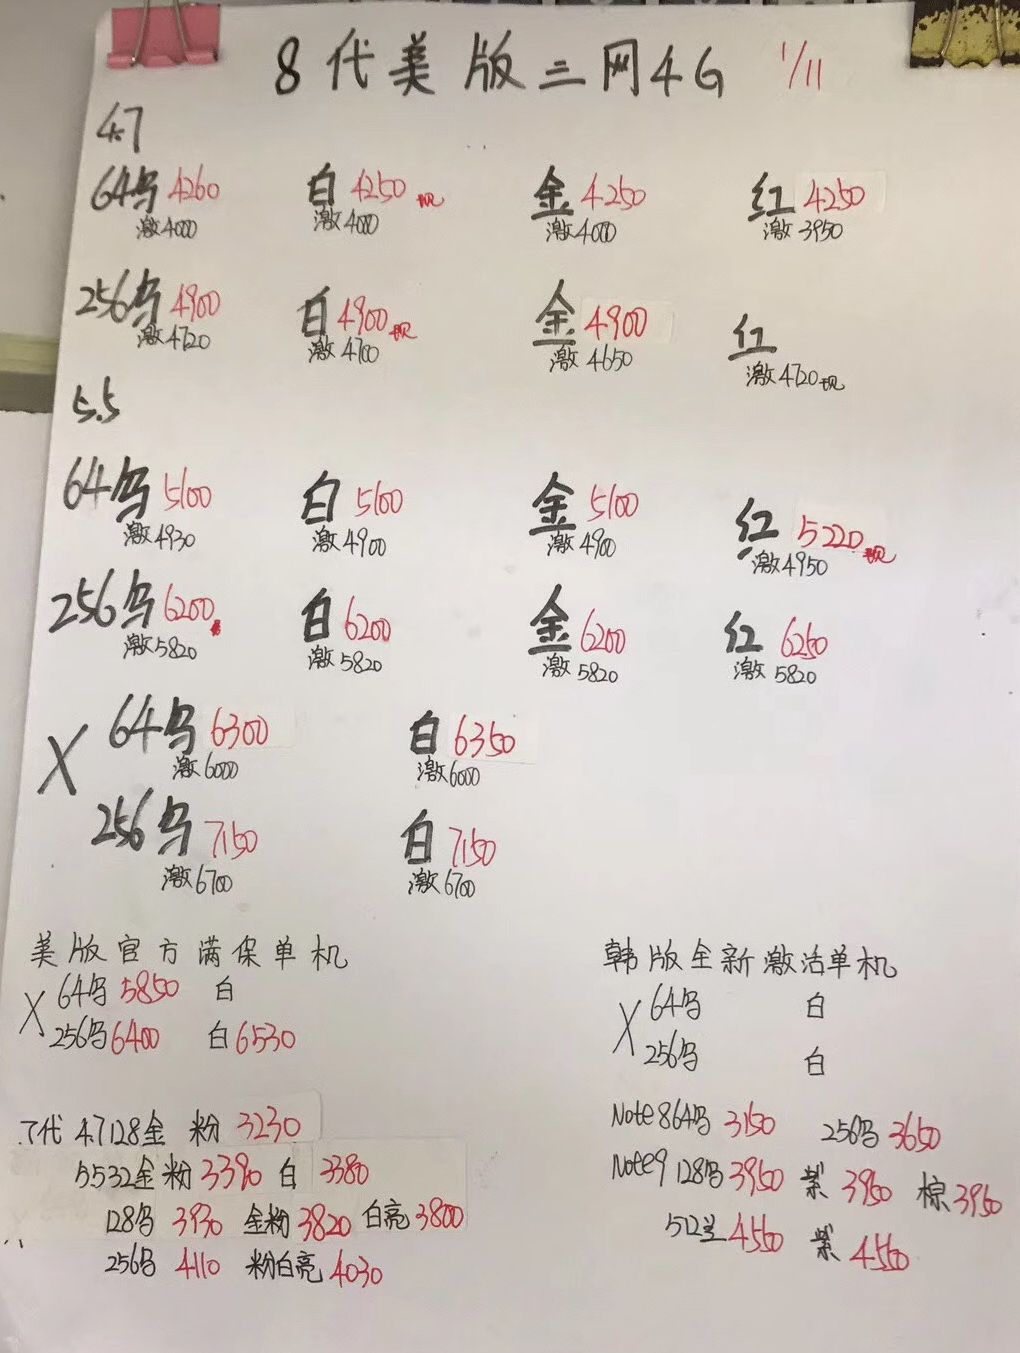 8代美版三网4G 1/11
4.7
64乌4260 白4250现 金4250 红4250
激4000 激4000 激4000 激3950
256乌4900 白4900现 金4900 红
激4720 激4700 激4650 激4720现
5.5
64乌5100 白5100 金5100 红5220现
激4930 激4900 激4900 激4950
256乌6200 白6200 金6200 红6250
激5820 激5820 激5820 激5820
X 64乌6300 白6350
激6000 激6000
256乌7150 白7150
激6700 激6700
美版官方满保单机
X 64乌5850 白
256乌6400 白6530
韩版全新激活单机
X 64乌 白
256乌 白
7代 4.7128金 粉 3230
5.532金粉3390 白 3380
128乌 3930 金粉3820 白亮3800
256乌 4110 粉白亮4030
Note864乌3150 256乌3650
Note9 128乌3950 紫3950 棕3950
512兰4550 紫4550